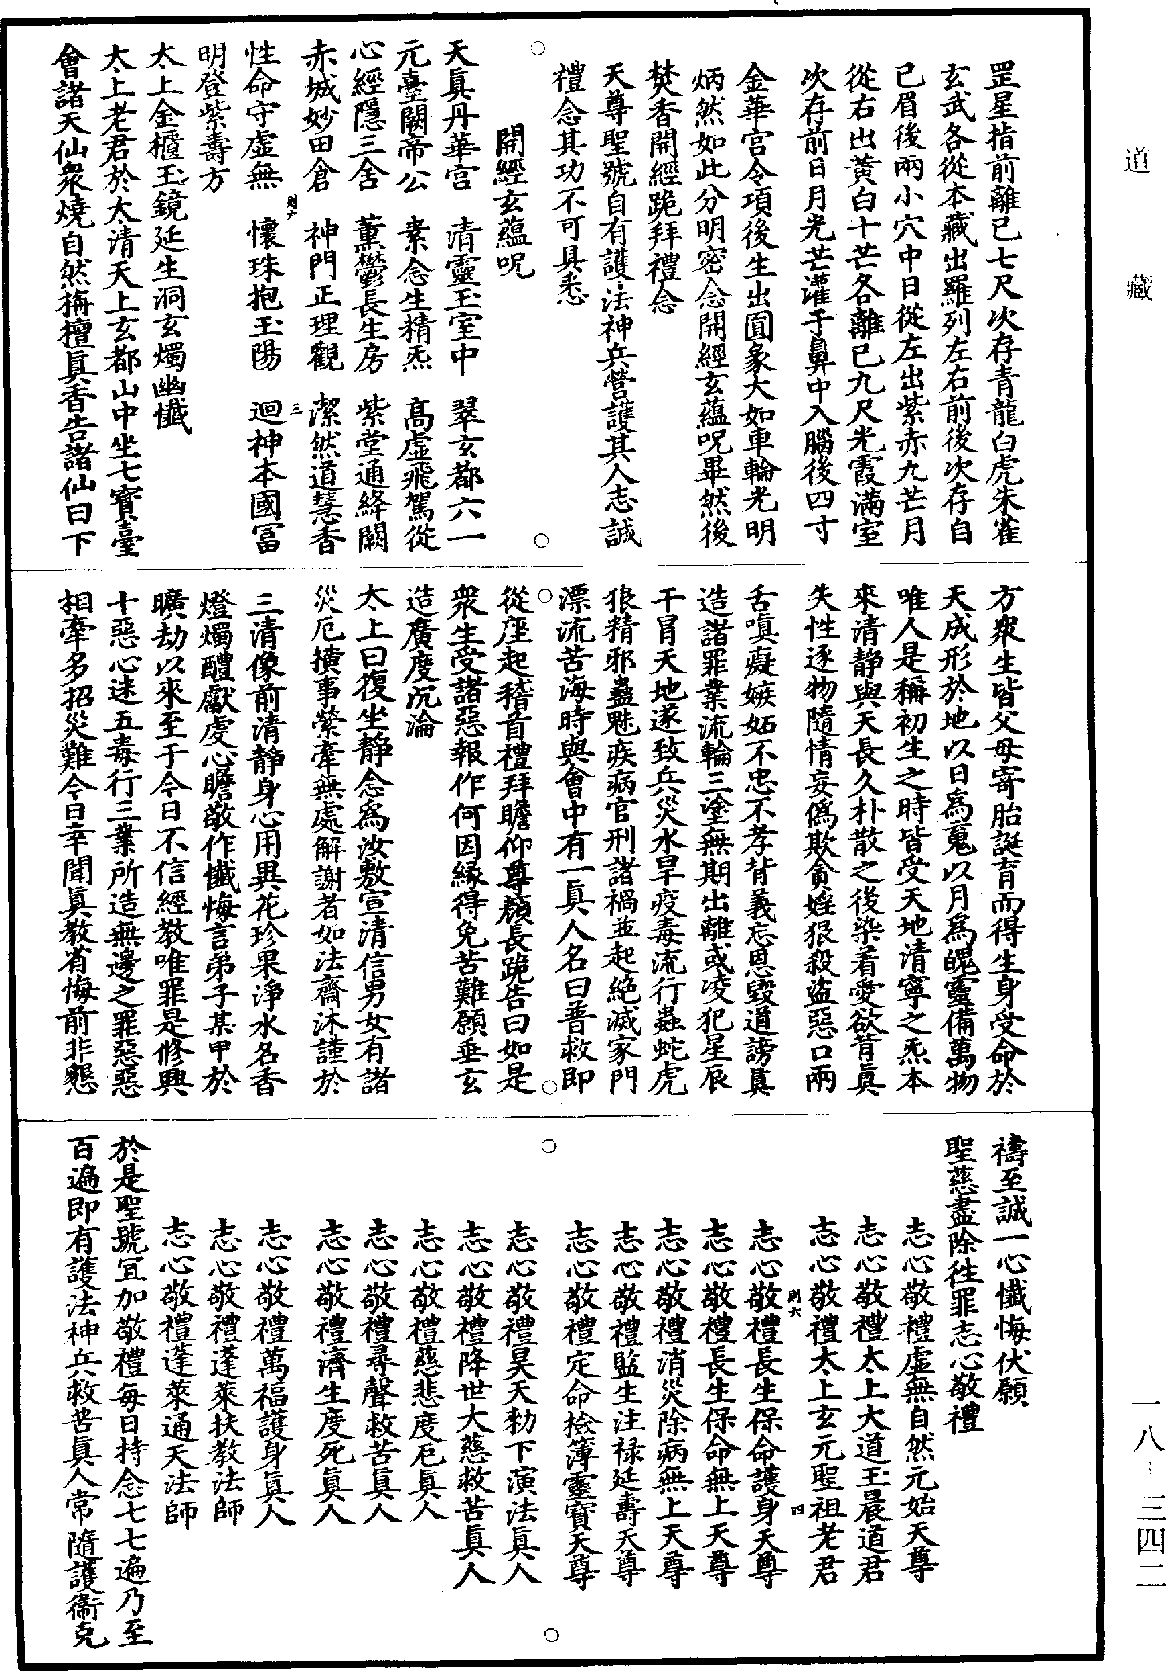 道藏
罡星指前離己七尺次存青龍白虎朱雀
玄武各從本藏出羅列左右前後次存自
己眉後兩小穴中日從左出紫赤九芒月
從右出黃白十芒各離己九尺光霞滿室
次存前日月光芒灌于鼻中入腦後四寸
金華宮令項後生出圓象大如車輪光明
炳然如此分明密念開經玄蘊呪畢然後
焚香開經跪拜禮念
天尊聖號自有護法神兵營護其人志誠
禮念其功不可具悉
開經玄蘊呪
天真丹華宮 清靈玉室中 翠玄都六一
元臺闕帝公 素念生精炁 高虛飛駕從
心經隱三舍 薰鬱長生房 紫堂通絳闕
赤城妙田倉 神門正理觀 潔然道慧香
性命守虛無 懷珠抱玉陽 迴神本國冨
明登紫壽方
太上金櫃玉鏡延生洞玄燭幽懺
太上老君於太清天上玄都山中坐七寶臺
會諸天仙衆燒自然旃檀真香告諸仙曰下
方衆生皆父母寄胎誕育而得生身受命於
天成形於地以日爲䰟以月爲魄靈備萬物
唯人是稱初生之時皆受天地清寧之炁本
來清静與天長久朴散之後染着愛欲昔真
失性逐物隨情妄僞欺貪婬狠殺盜惡口兩
舌嗔癡嫉妬不忠不孝背義忘恩毀道謗真
造諸罪業流輪三塗無期出離或凌犯星辰
干冒天地遂致兵災水旱疫毒流行蟲蛇虎
狼精邪蠱魅疾病官刑諸禍並起絶滅家門
漂流苦海時與會中有一真人名曰普救即
從座起稽首禮拜瞻仰尊顏長跪告曰如是
衆生受諸惡報作何因縁得免苦難願垂玄
造廣度沉淪
太上曰復坐静念爲汝敷宣清信男女有諸
災厄擴事縈牽無處解謝者如法齋沐謹於
三清像前清静身心用異花珍果淨水名香
燈燭醴獻虔心瞻敬作懺悔言弟子某甲於
曠劫以來至于今日不信經教唯罪是修興
十惡心迷五毒行三業所造無邊之罪惡惡
相牽多招災難今日幸聞真教省悔前非懇
禱至誠一心懺悔伏願
聖慈盡除往罪志心敬禮
志心敬禮虛無自然元始天尊
志心敬禮太上大道玉晨道君
志心敬禮太上玄元聖祖老君
志心敬禮長生保命護身天尊
志心敬禮長生保命無上天尊
志心敬禮消災除病無上天尊
志心敬禮監生注禄延壽天尊
志心敬禮定命撿簿靈寶天尊
志心敬禮昊天勑下演法真人
志心敬禮降世大慈救苦真人
志心敬禮慈悲度厄真人
志心敬禮尋聲救苦真人
志心敬禮濟生度死真人
志心敬禮萬福護身真人
志心敬禮蓬萊扶教法師
志心敬禮蓬萊通天法師
於是聖號冝加敬禮每日持念七七遍乃至
百遍即有護法神兵救苦真人常隨護衞克
一八·三四二